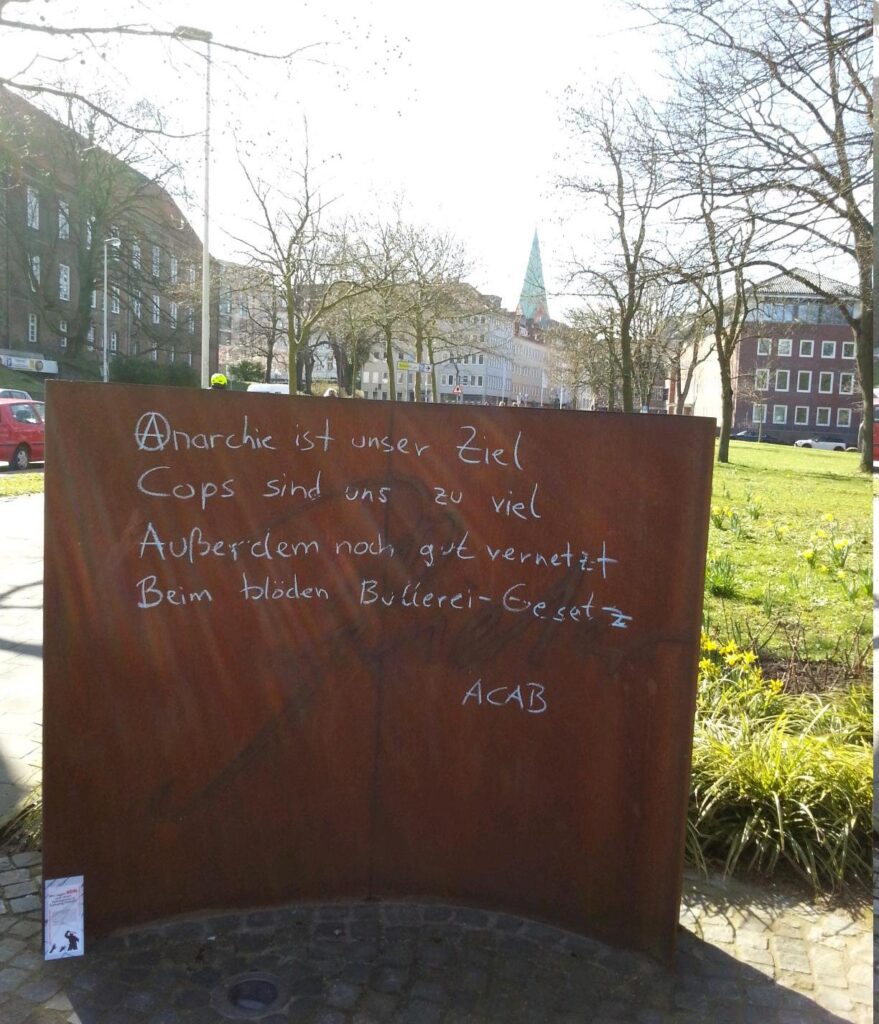 Anarchie ist unser Ziel
Cops sind uns zu viel
Außerdem noch gut vernetzt
Beim blöden Bullerei-Gesetz
ACAB